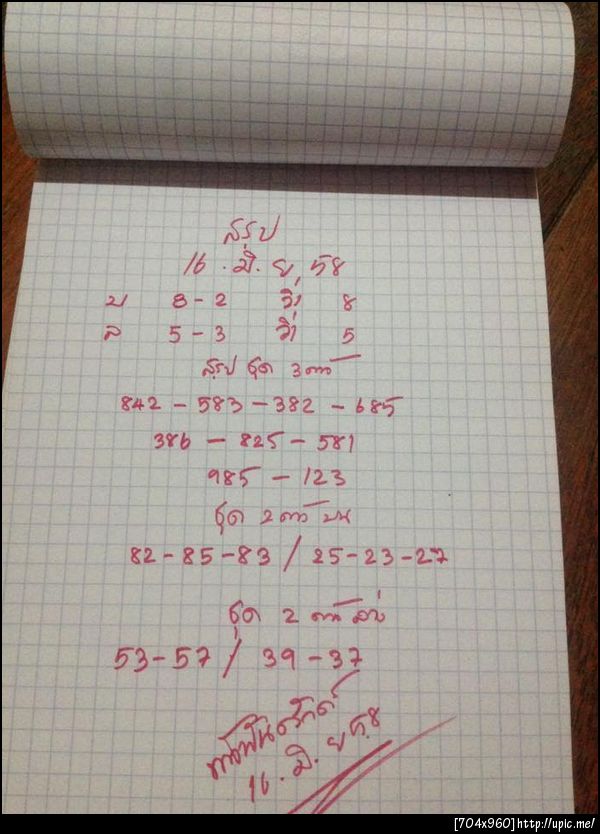 สรุป
16 . มิ . ย . 58
บ 8 - 2 วิ่ง 8
ล 5 - 3 วิ่ง 5
สรุป ชุด 3 ตัว
842 - 583 - 382 - 685
386 - 825 - 581
985 - 123
ชุด 2 ตัว บน
82 - 85 - 83 / 25 - 23 - 27
ชุด 2 ตัว ล่าง
53 - 57 / 39 - 37
16 . มิ . ย 58
[704x960]http://upic.me/